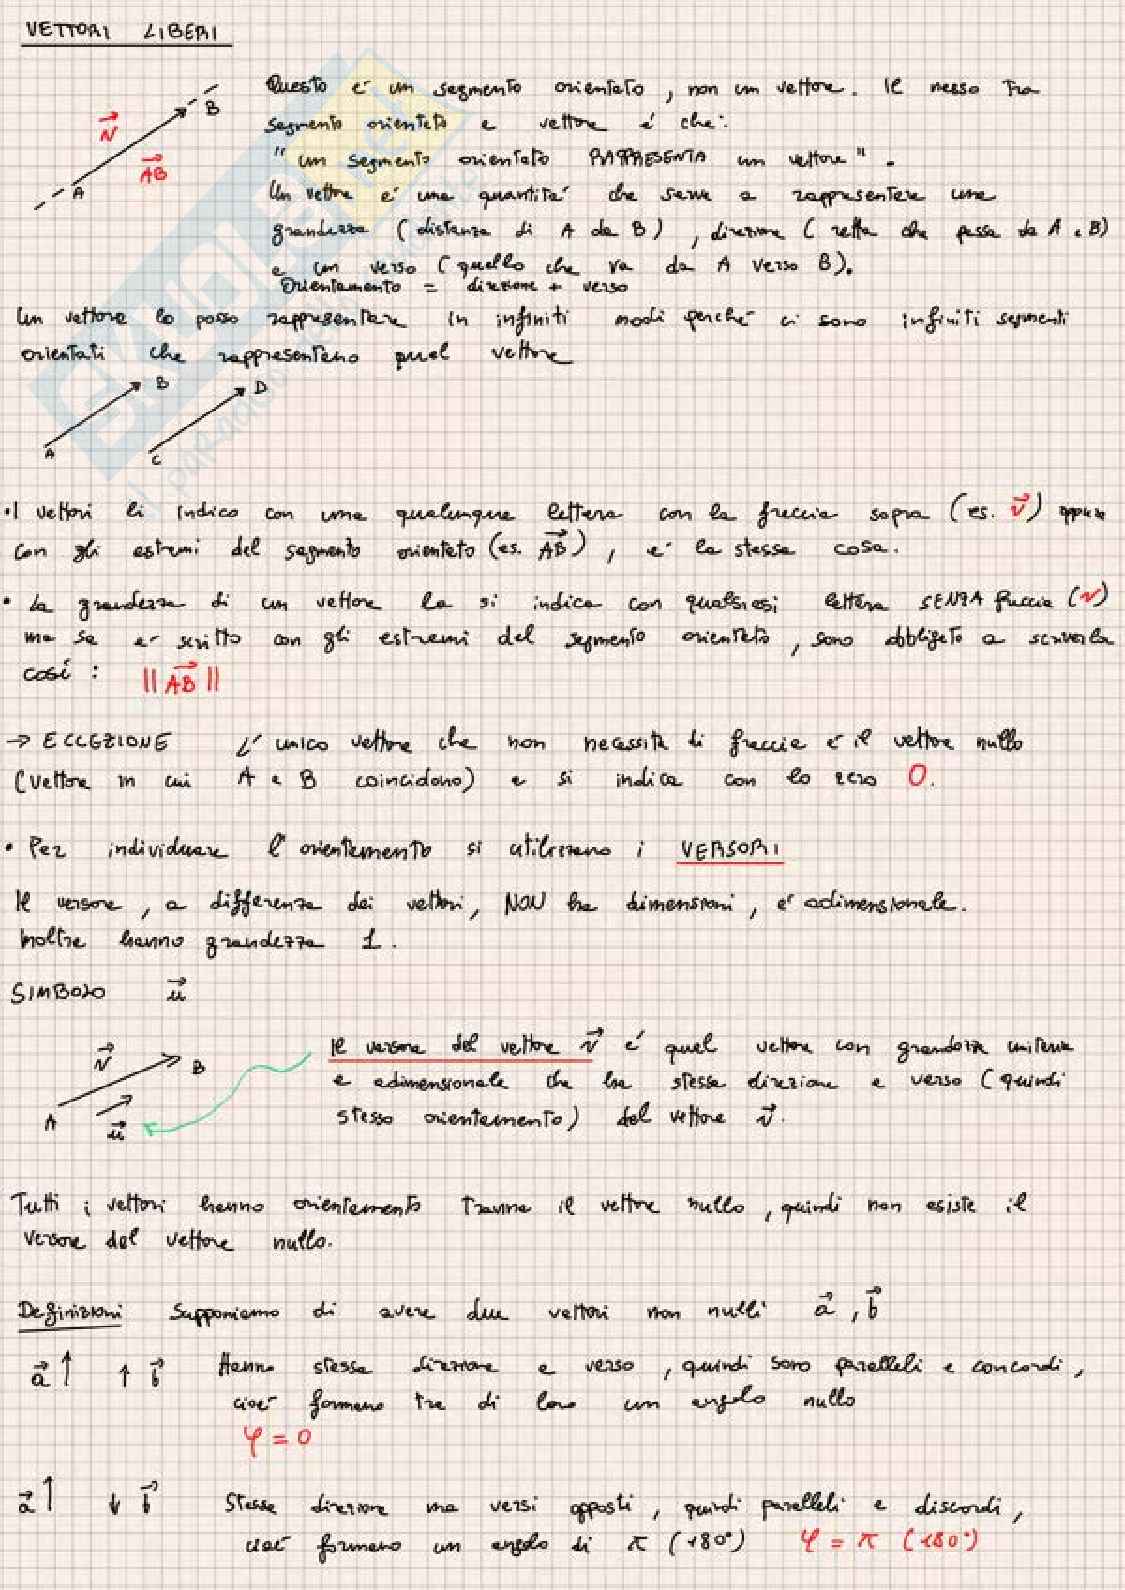 VETTORI LIBERI
Questo é un segmento orientato, non un vettore. Il nesso tra
segmento orientato e vettore é che:
"un segmento orientato RAPPRESENTA un vettore".
Un vettore é una quantitá che serve a rappresentare una
grandezza (distanza di A da B), direzione (retta che passa da A e B)
e un verso (quello che va da A verso B).
Orientamento = direzione + verso
A B v⃗ AB⃗
Un vettore lo posso rappresentare in infiniti modi perché ci sono infiniti segmenti
orientati che rappresentano quel vettore
A B C D
• I vettori li indico con una qualunque lettera con la freccia sopra (es. v⃗) oppure
con gli estremi del segmento orientato (es. AB⃗), é la stessa cosa.
• La grandezza di un vettore la si indica con qualsiasi lettera SENZA freccia (v)
ma se é scritto con gli estremi del segmento orientato, sono obbligato a scriverla
cosí: ||AB⃗||
→ ECCEZIONE L'unico vettore che non necessita di freccia é il vettore nullo
(vettore in cui A e B coincidono) e si indica con lo zero 0.
• Per individuare l'orientamento si utilizzano i VERSORI
Il versore, a differenza dei vettori, NON ha dimensioni, é adimensionale.
Inoltre hanno grandezza 1.
SIMBOLO u⃗
A B v⃗ u⃗
Il versore del vettore v⃗ é quel vettore con grandezza unitaria
e adimensionale che ha stessa direzione e verso (quindi
stesso orientamento) del vettore v⃗.
Tutti i vettori hanno orientamento tranne il vettore nullo, quindi non esiste il
versore del vettore nullo.
Definizioni Supponiamo di avere due vettori non nulli a⃗, b⃗
a⃗ ↑ ↑ b⃗ Hanno stessa direzione e verso, quindi sono paralleli e concordi,
cioé formano tra di loro un angolo nullo
φ = 0
a⃗ ↑ ↓ b⃗ Stessa direzione ma versi opposti, quindi paralleli e discordi,
cioé formano un angolo di π (180°) φ = π (180°)